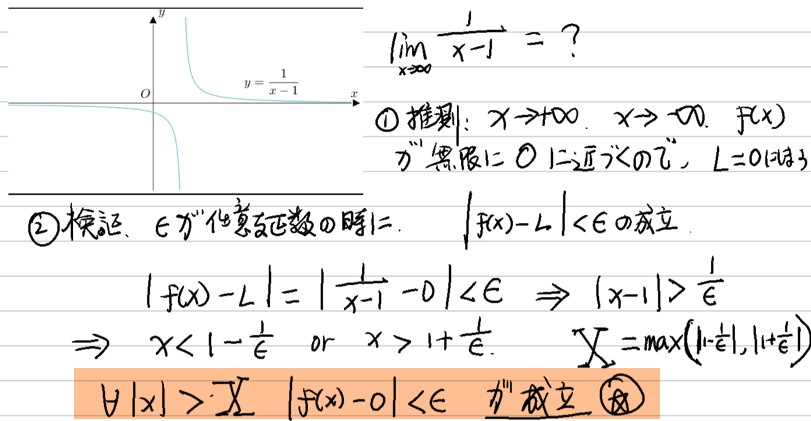 y
O
x
y = 1/(x − 1)
lim x→∞ 1/(x−1) = ?
① 推測: x→+∞. x→−∞. f(x)
が無限に 0 に近づくので, L=0になる
② 検証. ϵが任意正数の時に. |f(x)−L|<ϵの成立.
|f(x)−L| = |1/(x−1) −0|<ϵ ⇒ |x−1|> 1/ϵ
⇒ x< 1−1/ϵ or x> 1+1/ϵ. X =max(|1−1/ϵ|, |1+1/ϵ|)
∀|x|> X |f(x)−0|<ϵ が成立